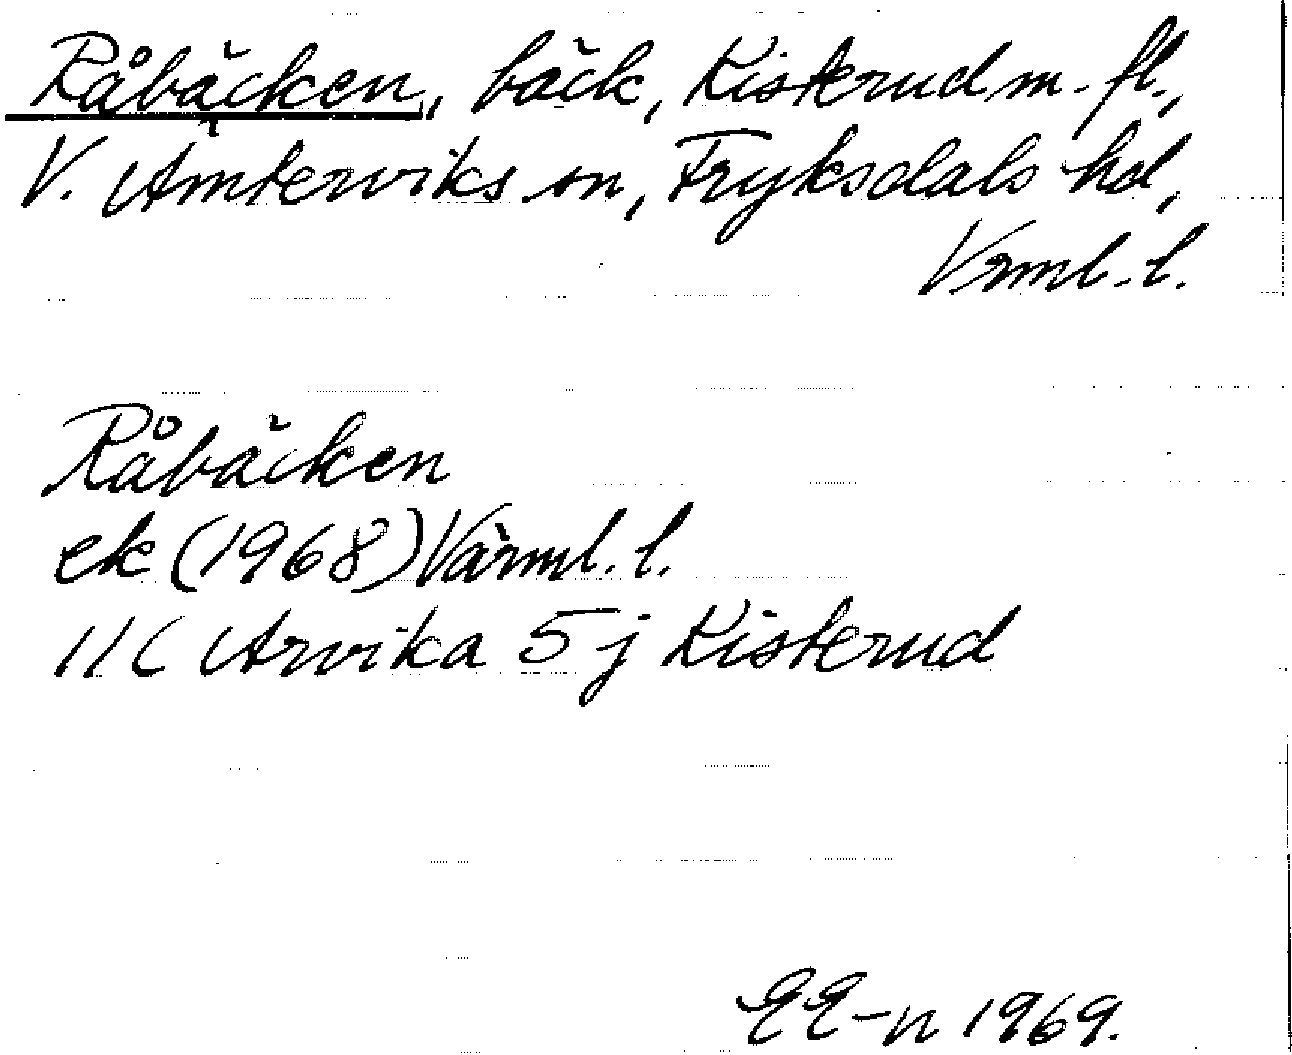 Råbäcken, bäck, Kisterud m. fl.,
V. Ämterviks sn, Fryksdals hd,
Vrml. l.
Råbäcken
ek (1968) Värml. l.
11C Arvika 5j Kisterud
EE-n 1969.